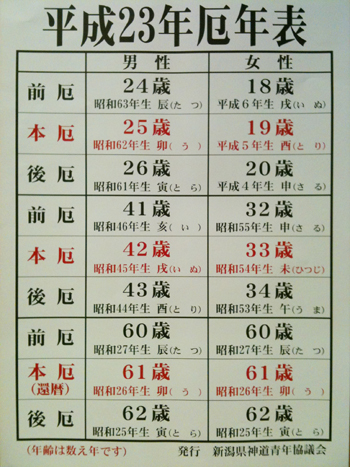 平成23年厄年表
男性 女性
前厄 24歳 18歳
昭和63年生 辰(たつ) 平成6年生 戌(いぬ)
本厄 25歳 19歳
昭和62年生 卯(う) 平成5年生 酉(とり)
後厄 26歳 20歳
昭和61年生 寅(とら) 平成4年生 申(さる)
前厄 41歳 32歳
昭和46年生 亥(い) 昭和55年生 申(さる)
本厄 42歳 33歳
昭和45年生 戌(いぬ) 昭和54年生 未(ひつじ)
後厄 43歳 34歳
昭和44年生 酉(とり) 昭和53年生 午(うま)
前厄 60歳 60歳
昭和27年生 辰(たつ) 昭和27年生 辰(たつ)
本厄 61歳 61歳
(還暦) 昭和26年生 卯(う) 昭和26年生 卯(う)
後厄 62歳 62歳
昭和25年生 寅(とら) 昭和25年生 寅(とら)
(年齢は数え年です) 発行 新潟県神道青年協議会